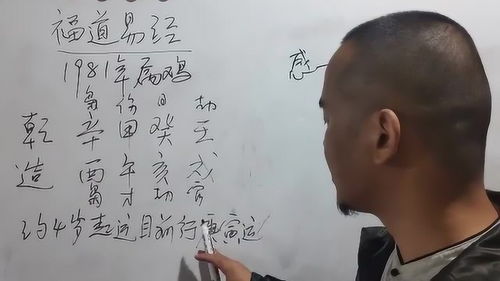 福道易经
1981年属鸡
枭 伤 日 劫
乾 辛 甲 癸 壬
造 酉 午 亥 戌
枭 才 劫 官
约4岁起运目前行庚寅运
感